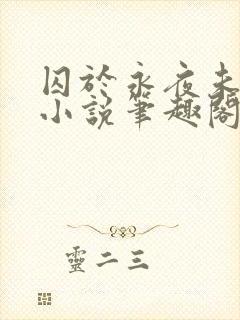 囚於永夜未
小說筆趣閣
靈二三